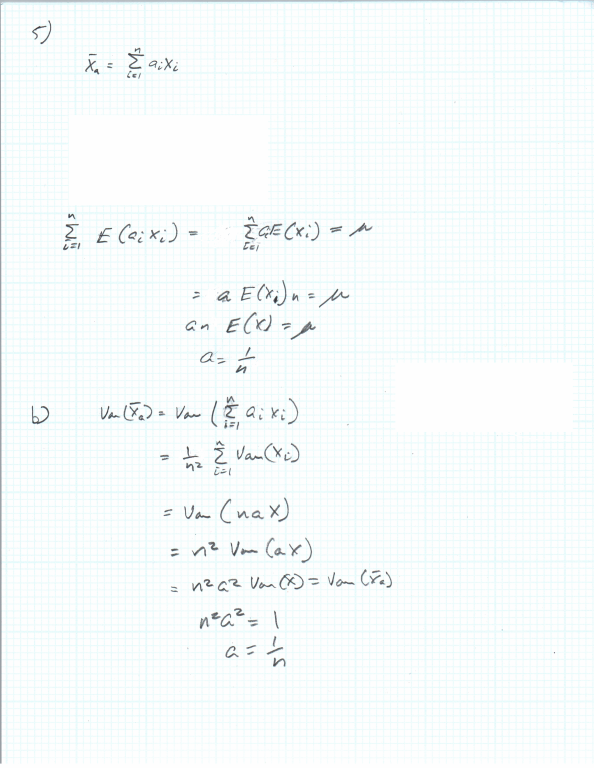 5)
X̄ₐ = Σⁿᵢ₌₁ aᵢxᵢ
Σⁿᵢ₌₁ E(aᵢxᵢ) = Σⁿᵢ₌₁ aE(xᵢ) = μ
= a E(xᵢ)n = μ
an E(x) = μ
a = 1/n
b) Var(X̄ₐ) = Var(Σⁿᵢ₌₁ aᵢxᵢ)
= 1/n² Σⁿᵢ₌₁ Var(xᵢ)
= Var(nax)
= n² Var(ax)
= n²a² Var(x) = Var(x̄ₐ)
n²a² = 1
a = 1/n